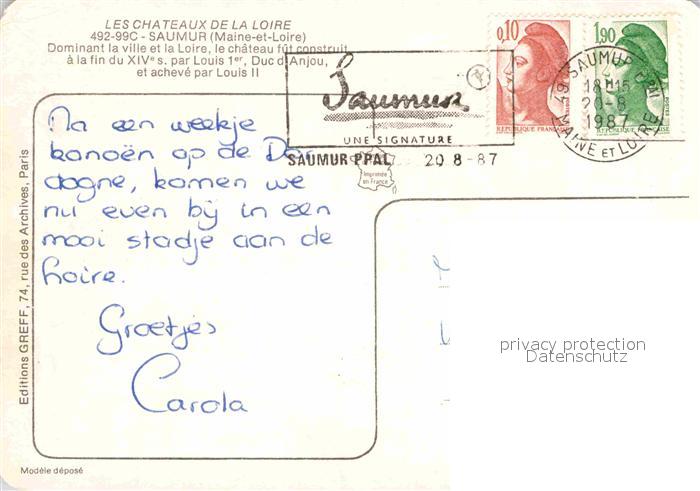 LES CHATEAUX DE LA LOIRE
492-99C - SAUMUR (Maine-et-Loire)
Dominant la ville et la Loire, le château fût construit
à la fin du XIVe s. par Louis 1er, Duc d'Anjou,
et achevé par Louis II
0,10
REPUBLIQUE FRANÇAISE
1,90
REPUBLIQUE FRANÇAISE
Saumur
UNE SIGNATURE
SAUMUR PPAL 20 8-87
49 SAUMUR PPAL
18H15
20-8
1987
MAINE ET LOIRE
Imprimée
en France
Na een weekje
kanoën op de Dor
dogne, komen we
nu even bij in een
mooi stadje aan de
Loire.
Groetjes
Carola
Editions GREFF, 74, rue des Archives, Paris
privacy protection
Datenschutz
Modèle déposé